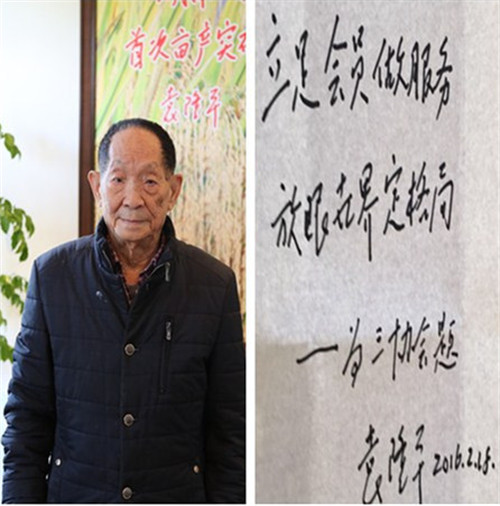 首次亩产突
袁隆平
立足会员做服务
放眼世界定格局
—为三协会题
袁隆平 2016.2.18.